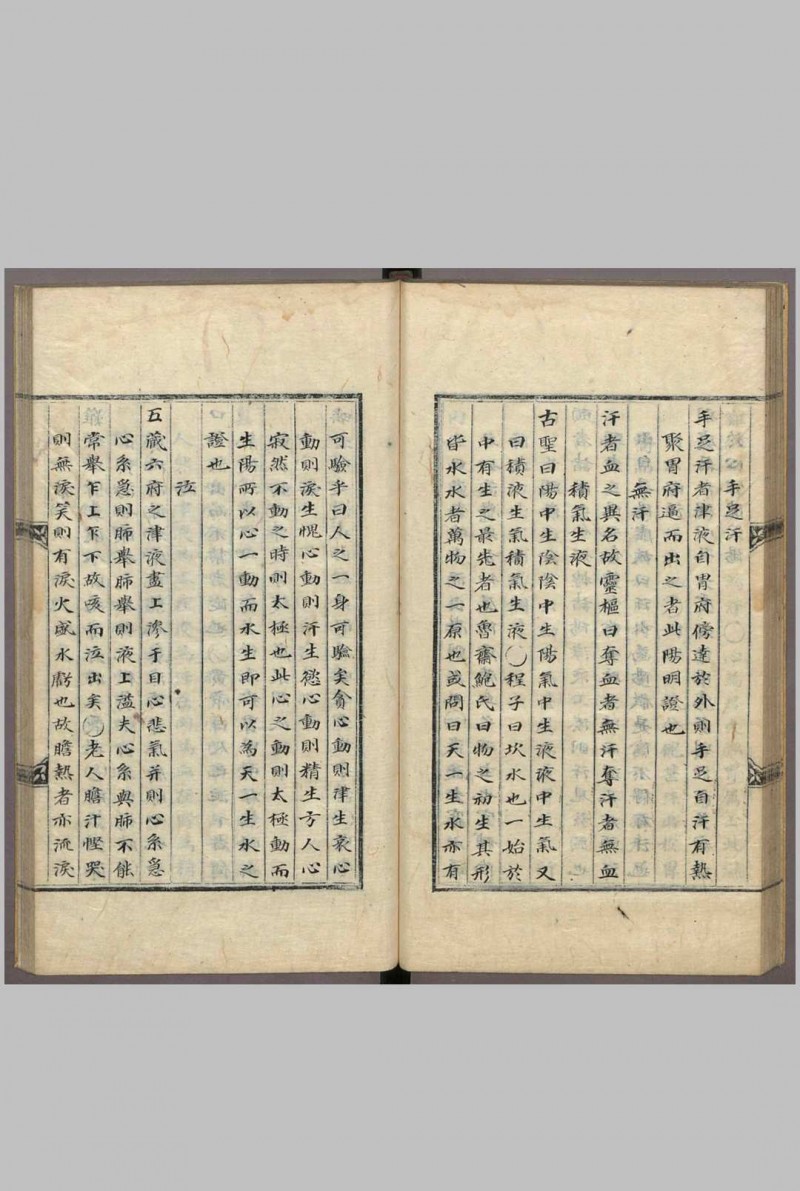 手足汗
手足汗者津液自胃府傍達於外則手足自汗有熱
聚胃府逼而出之者此陽明證也
無汗
汗者血之異名故靈樞曰奪血者無汗奪汗者無血
積氣生液
古聖曰陽中生陰陰中生陽氣中生液液中生氣又
曰積液生氣積氣生液〇程子曰坎水也一始於
中有生之最先者也魯齋鮑氏曰物之初生其形
皆水水者萬物之一原也或問曰天一生水亦有
可驗乎曰人之一身可驗矣貪心動則津生哀心
動則淚生愧心動則汗生慾心動則精生方人心
寂然不動之時則太極也此心之動則太極動而
生陽所以心一動而水生即可以為天一生水之
證也
泣
五藏六府之津液盡上滲于目心悲氣并則心系急
心系急則肺舉肺舉則液上溢夫心系與肺不能
常舉乍上乍下故咳而泣出矣〇老人膽汁慳哭
則無淚笑則有淚火盛水虧也故膽熱者亦流淚